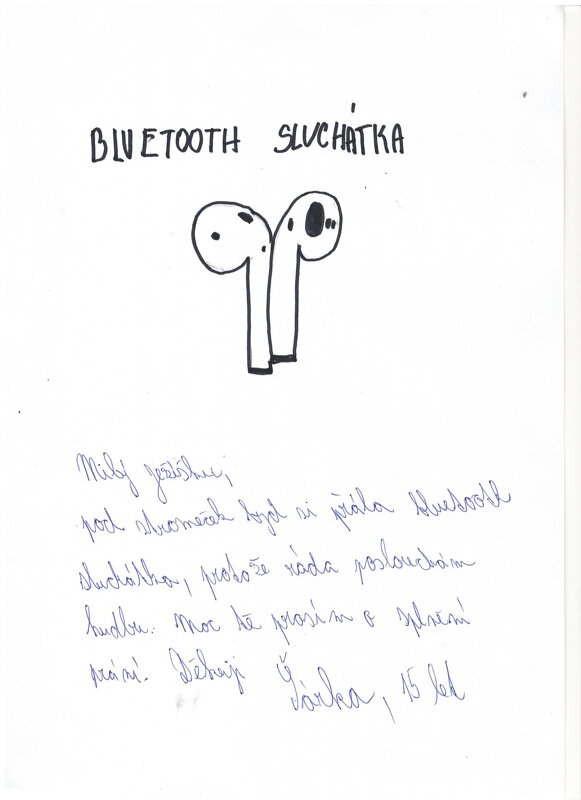 BLUETOOTH SLUCHÁTKA
Milý ježíšku,
pod stromeček bych si přála bluetooth
sluchátka, protože ráda poslouchám
hudbu. Moc tě prosím o splnění
přání. Děkuji
Šárka, 15 let